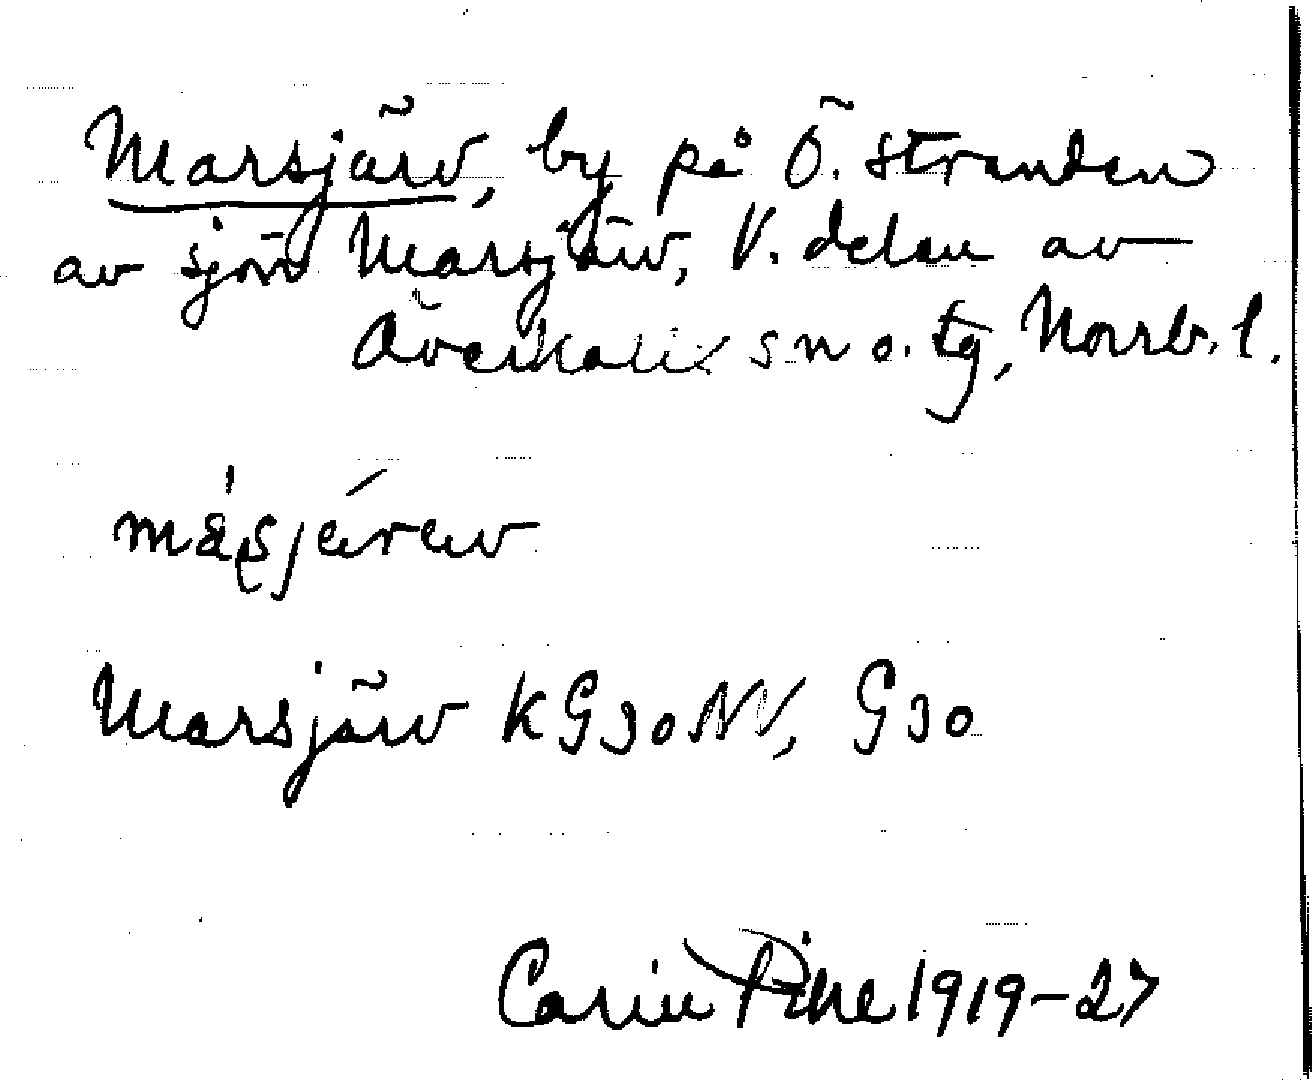 Marsjärv, by på Ö. stranden
av sjön Marsjärv, V. delen av
Överkalix sn o. tg, Norrb. l.
Marsjärv KG30NV, G30
Carin Pihl 1919-27